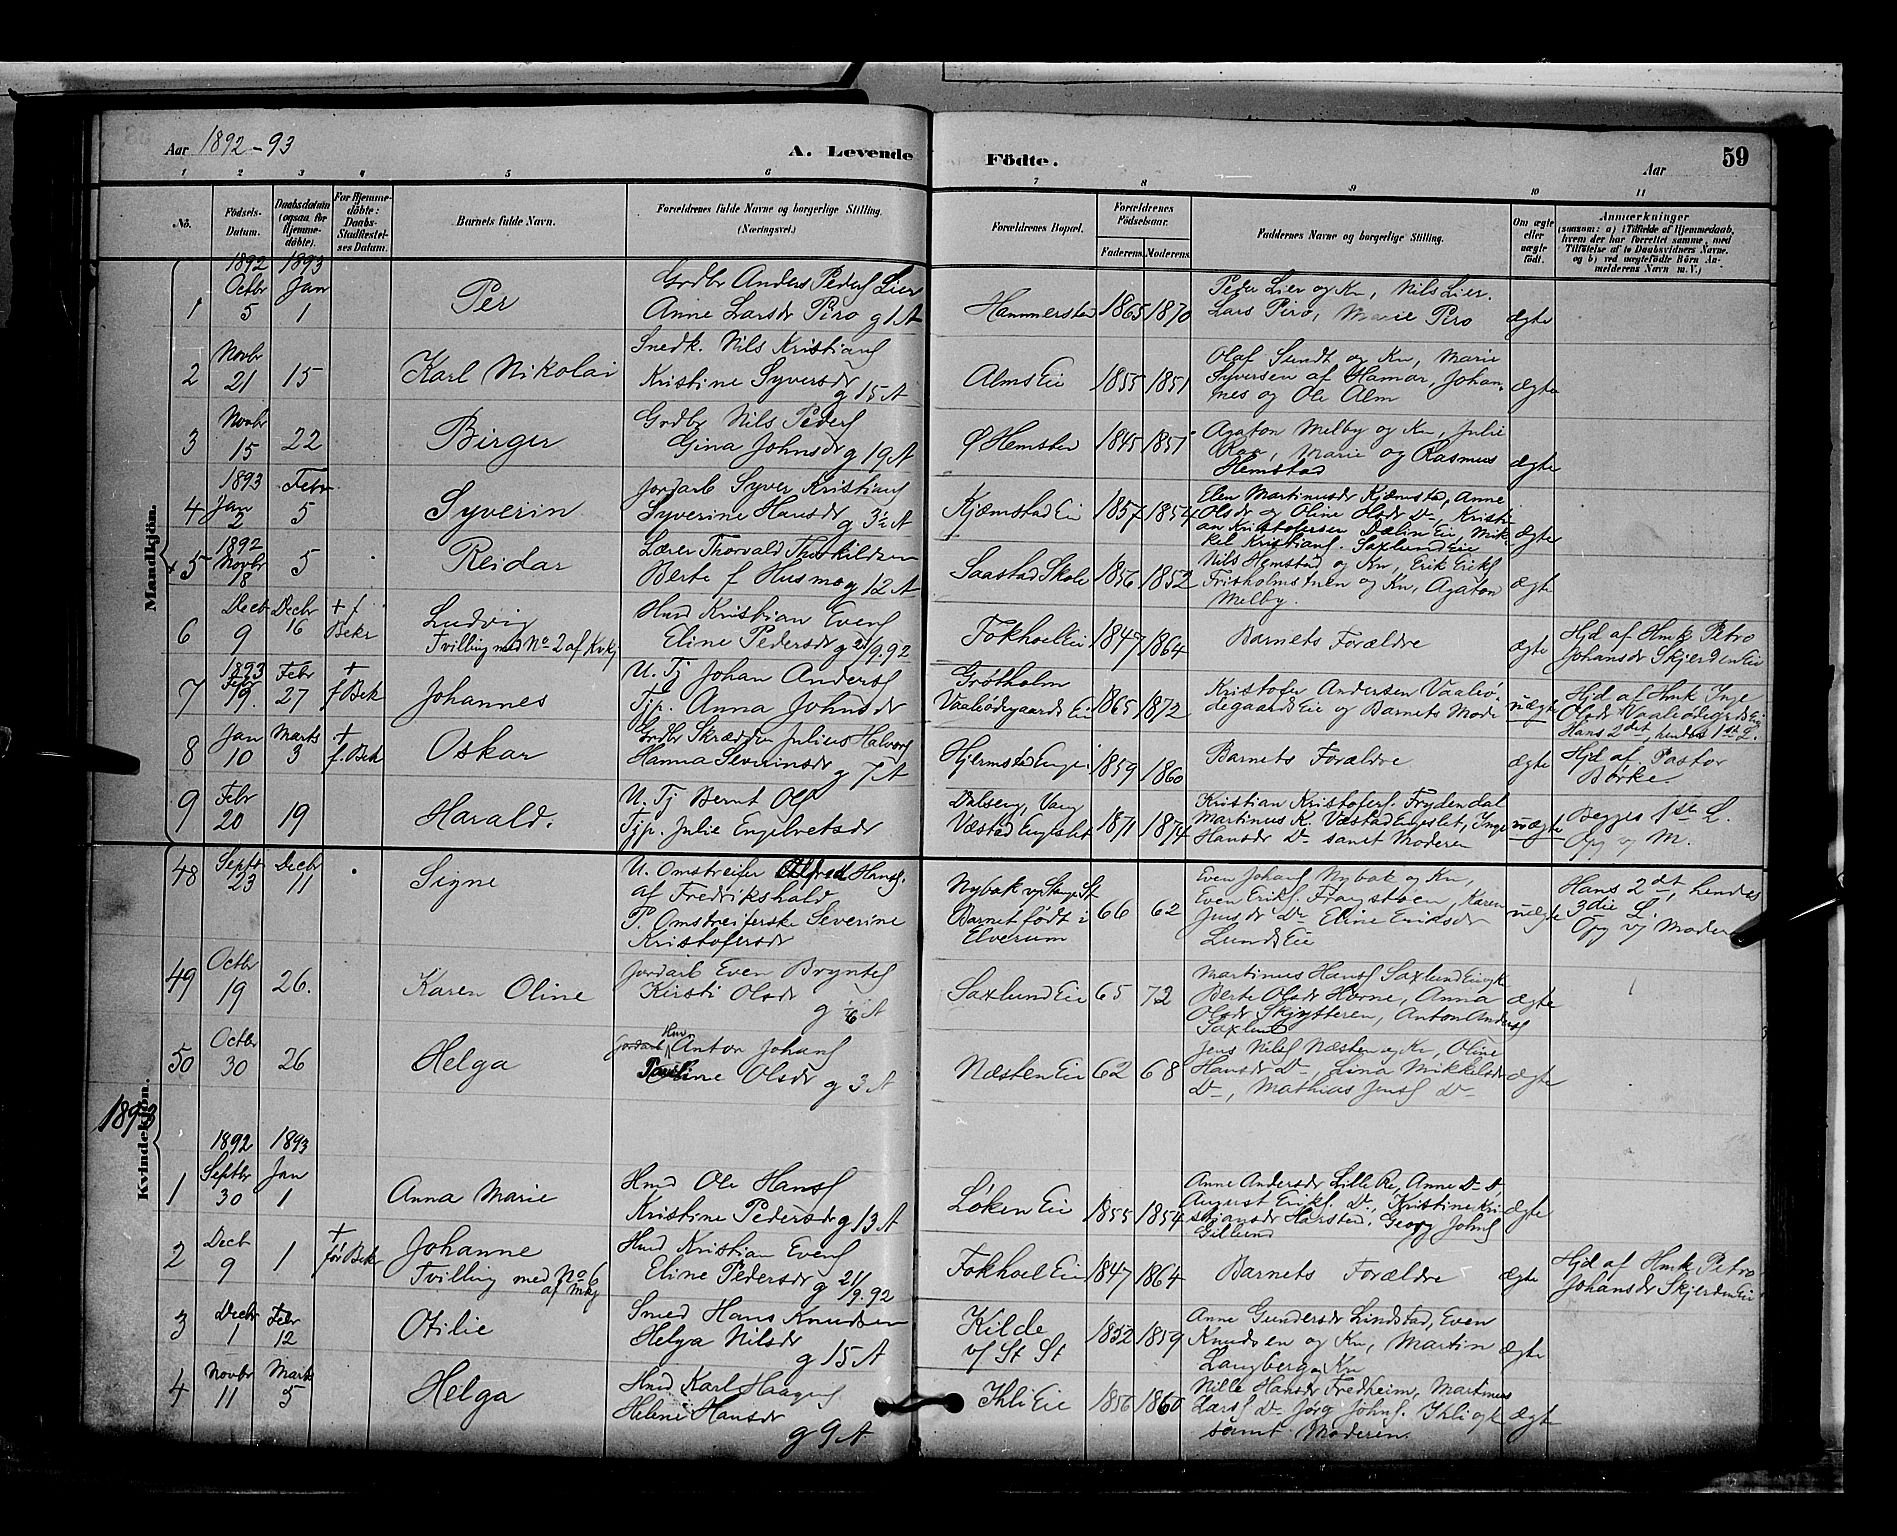 Aar 1892-93
A. Levende Fødte.
Aar
59
1 2 3 4 5 6 7 8 9 10 11
No.
Födsels-Datum.
Daabsdatum (ogsaa for Hjemme-döbte).
For Hjemme-döbte: Daabs-Stadfæstel-ses Datum.
Barnets fulde Navn.
Forældrenes fulde Navne og borgerlige Stilling. (Næringsvei.)
Forældrenes Bopæl.
Forældrenes Födselsaar.
Faderens. Moderens.
Faddernes Navne og borgerlige Stilling.
Om ægte eller uægte födt.
Anmærkninger (saasom: a) i Tilfælde af Hjemmedaab, hvem der har forrettet samme, med Tilföielse af to Daabsvidners Navne, og b) ved uægtefödte Börn Anmelderens Navn m. V.)
Mandkjön.
1892 1893
1 Octbr 5 Jan 1 Per
Grdbr Anders Peders Lier
Anne Larsdr Piro g 1 A
Hammerstad 1865 1870
Peder Lier og Kn, Nils Lier.
Lars Piro, Marie Piro
ægte
2 Novbr 21 15 Karl Nikolai
Snedk. Nils Kristians
Kristine Syversdr g 15 A
Alms Eie 1855 1851
Olaf Sundt og Kn, Marie
Syversen af Hamar, Johan-
nes og Ole Alm
ægte
3 Novbr 15 22 Birger
Grdbr Nils Peders
Gina Johnsdr g 19 A
Ø Hemstad 1845 1851
Agaton Melby og Kn, Julie
Roo, Marie og Rasmus
Hemstad
ægte
1893 Febr
4 Jan 2 5 Syverin
Jordarb Syver Kristians
Syverine Hansdr g 3½ A
Kjæmstad Eie 1857 1854
Elen Martinusdr Kjæmstad, Anne
Olsdr og Oline Olsdr Do, Kristi-
an Kristofersen Dælin Eie Mik-
kel Kristians. Saxlund Eie
ægte
1892
5 Novbr 18 5 Reidar
Lærer Thorvald Thorkildsen
Berte f Husmo g 12 A
Saastad Skole 1856 1852
Nils Hemstad og Kn, Erik Eriks
Frisholmstuen og Kn, Agaton
Melby.
ægte
6 Decb 9 Decbr 16 + f Bekr
Ludvig
Tvilling med No 2 af Kvkj
Hmd Kristian Evens
Eline Pedersdr g 21/9.92
Fokhoel Eie 1847 1864
Barnets Forældre
ægte
Hjd af Hmk Petro
Johansdr Skjerden Eie
7 1893 Febr 19. Febr 27 + f Bek
Johannes
U. Tj Johan Anders
Tjp. Anna Johnsdr
Grøtholm
Vaaleødegaards Eie 1865 1872
Kristofer Andersen Vaaleø-
degaards Eie og Barnets Mode
uægte
Hjd af Hmk Inge
Olsdr Vaaleødegrds Eie
Hans 2det, hendes 1ste L.
8 Jan 10 Marts 3 + f. Bek
Oskar
Grdbr Skrædder Julius Halvors
Hanna Severinsdr g 7 A
Hjelmstad Enge 1859 1860
Barnets Forældre
ægte
Hjd af Pastor
Børke.
9 Febr 20 19 Harald.
U. Tj Bernt Ols
Tjp. Julie Engebretsdr
Dalseng, Vang
Væstad Engeslet 1871 1874
Kristian Kristofers. Frydendal
Martinus K. Væstad Engeslet, Inge
Hansdr Do samt Moderen
uægte
Begges 1ste L.
Opg v M.
Kvindekjön.
48 Septr 23 Decbr 11 Signe
U. Omstreifer Alfred Hans.
af Fredrikshald
P. Omstreiferske Severine
Kristofersdr
Nybak v Stange St
Barnet født i
Elverum
66 62
Even Johans Nybak og Kn,
Even Eriks. Frangstøen, Karen
Jensdr Do Eline Eriksdr
Lunds Eie
uægte
Hans 2det, hendes
3die L.
Opg v Moder
49 Octbr 19 26. Karen Oline
Jordarb Even Bryntes
Kirsti Olsdr
g 1/6 A
Saxlund Eie 65 72
Martinus Hans Saxlund Eie og k
Berte Olsdr Horne, Anna
Olsdr Skjytteren, Anton Anders
Saxlund
ægte
50 Octbr 30 26 Helga
Jordarb Hmd Anton Johans
Pauline Olsdr g 3 A
Næsten Eie 62 68
Jens Nils Næsten og Kn, Oline
Hansdr Do, Lina Mikkelsdr
Do, Mathias Jens Do
ægte
1893
1892 1893
1 Septbr 30 Jan 1 Anna Marie
Hmd Ole Hans
Kristine Pedersdr g 13 A
Løken Eie 1855 1854
Anne Andersdr Lille Re, Anne Do Do,
August Eriks. Do, Kristine Kri-
stiansdr Harstad, Georg Johns
Gillund
ægte
2 Decb 9 1 + før Bek
Johanne
Tvilling med No 6
af Mkj
Hmd Kristian Evens
Eline Pedersdr g 21/9.92
Fokhoel Eie 1847 1864
Barnets Forældre
ægte
Hjd af Hmk Petro
Johansdr Skjerden Eie
3 Decbr 1 Febr 12 Otilie
Smed Hans Knudsen
Helga Nilsdr
g 15 A
Kilde
v/ St St
1852 1859
Anne Gundersdr Lindstad, Even
Knudsen og Kn, Martin
Langberg og Kn
ægte
4 Novbr 11 Marts 5 Helga
Hmd Karl Haagens
Helene Hansdr
g 9 A
Ihli Eie 1856 1860
Nille Hansdr Fredheim, Martinus
Lars Do Jørg Johns. Ihli og k
samt Moderen.
ægte